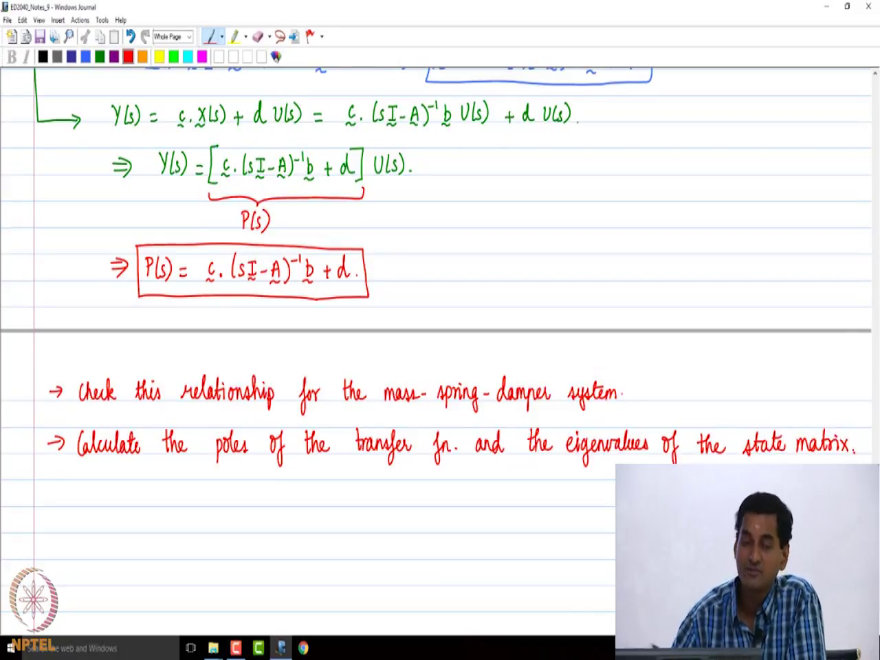 ED2040_Notes_9 - Windows Journal
File Edit View Insert Actions Tools Help
Whole Page
B I
Y(s) = c̰.X̰(s) + d U(s) = c̰.(sḬ-A̰)⁻¹b̰ U(s) + d U(s).
⇒ Y(s) = [c̰.(sḬ-A̰)⁻¹b̰ + d] U(s).
P(s)
⇒ P(s) = c̰.(sḬ-A̰)⁻¹b̰ + d.
→ Check this relationship for the mass-spring-damper system.
→ Calculate the poles of the transfer fn. and the eigenvalues of the state matrix.
NPTEL
the web and Windows